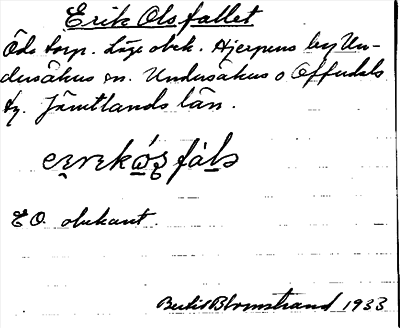 Erik Olsfallet
Öde torp. Läge obek. Hjerpens by Un-
dersåkers sn. Undersåkers o Offerdals
tg. Jämtlands län.
E O. obekant.
Bertil Blomstrand 1933